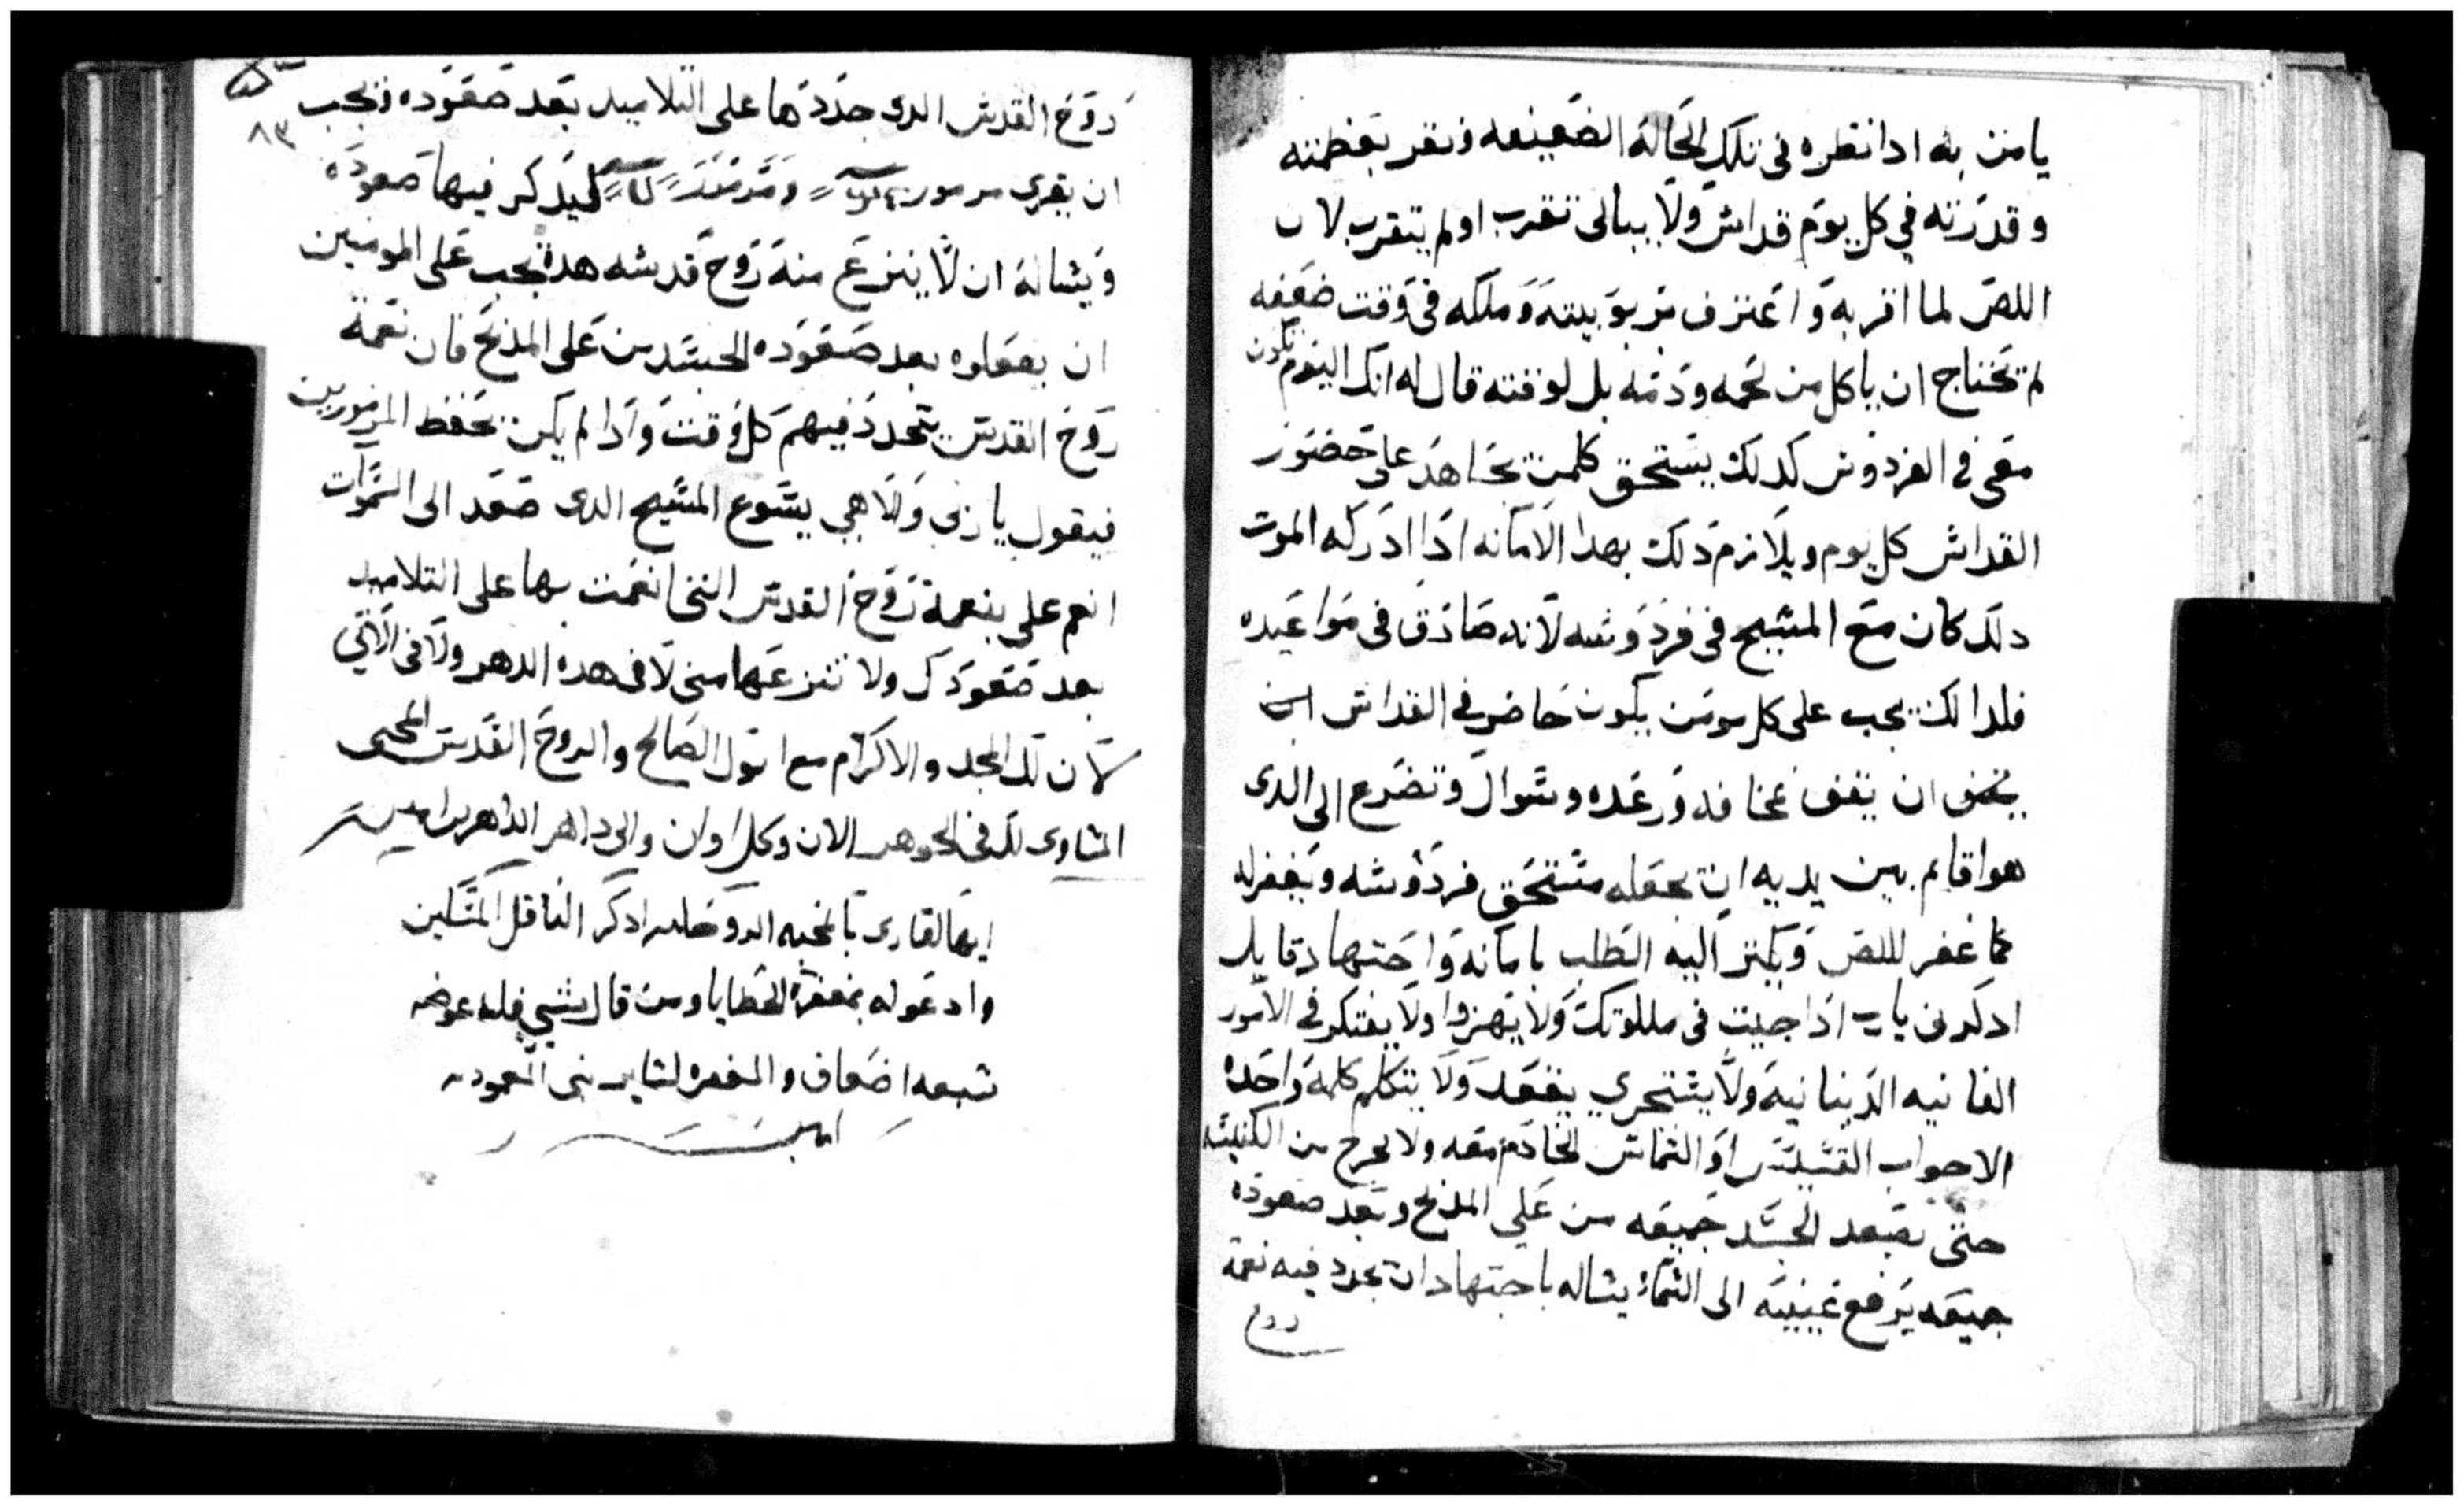 يامن به ادا نظره فى تلك الحالة الضعيفه ونقر بعظمته
وقدرته في كل يوم قداس ولا يبالى تقرب او لم يتقرب لان
اللص لما اقر به واعترف بربوبيته وملكه فى وقت ضعفه
لم تحتاج ان ياكل من لحمه ودمه بل لوقته قال له انك اليوم تكون
معى فى الفردوس كدلك يستحق كلمن يجاهد على حضور
القداس كل يوم ويلازم دلك بهدا الامانه ادا ادركه الموت
دلك كان مع المسيح فى فردوسه لانه صادق فى مواعيده
فلدالك يجب على كل مومن يكون حاضر فى القداس
ان يقف بمخافه ورعده وسوال وتضرع الى الدى
هوا قايم بين يديه ان يجعله مستحق فردوسه ويغفر له
كما غفر للص ويكتر اليه الطلب بامانه واجتهاد قايلا
ادكرنى يارب ادا جيت فى ملكوتك ولا يتهزوا ولا يفتكر فى الامور
الفانيه الدنيانيه ولا يستجرى يقعد ولا يتكلم كلمة واحده
الا جواب القسيس او الشماس الخادم معه ولا يخرج من الكنيسه
حتى يصعد الجسد جميعه من على المدبح وبعد صعوده
جميعه يرفع عينيه الى السماء يساله باجتهاد ان يجدد فيه نعمة
روح
٨٣
روح القدس الدى جددها على التلاميد بعد صعوده ويجب
ان يقرى مزمور ليدكر فيها صعوده
ويساله ان لا ينزع منه روح قدسه هده يجب على المومنين
ان يفعلوه بعد صعوده الجسد من على المدبح فان نعمة
روح القدس يتجدد فيهم كل وقت وادا لم يكن يحفظ المزمورين
فيقول يا ربى والاهى يسوع المسيح الدى صعد الى السموات
انعم على بنعمة روح القدس التى انعمت بها على التلاميد
بعد صعودك ولا تنزعها منى لا فى هده الدهر ولا فى الاتي
لان لك المجد والاكرام مع ابوك الصالح والروح القدس المحيى
المساوى لك فى الجوهر الان وكل اوان والى داهر الداهرين امين
ايها القارى بالمحبه الروحانيه ادكر الناقل المسكين
وادعوله بمغفرة الخطايا ومن قال شيي فله عوضه
سبعه اضعاف والمغفره لساير بنى المعموديه
امين